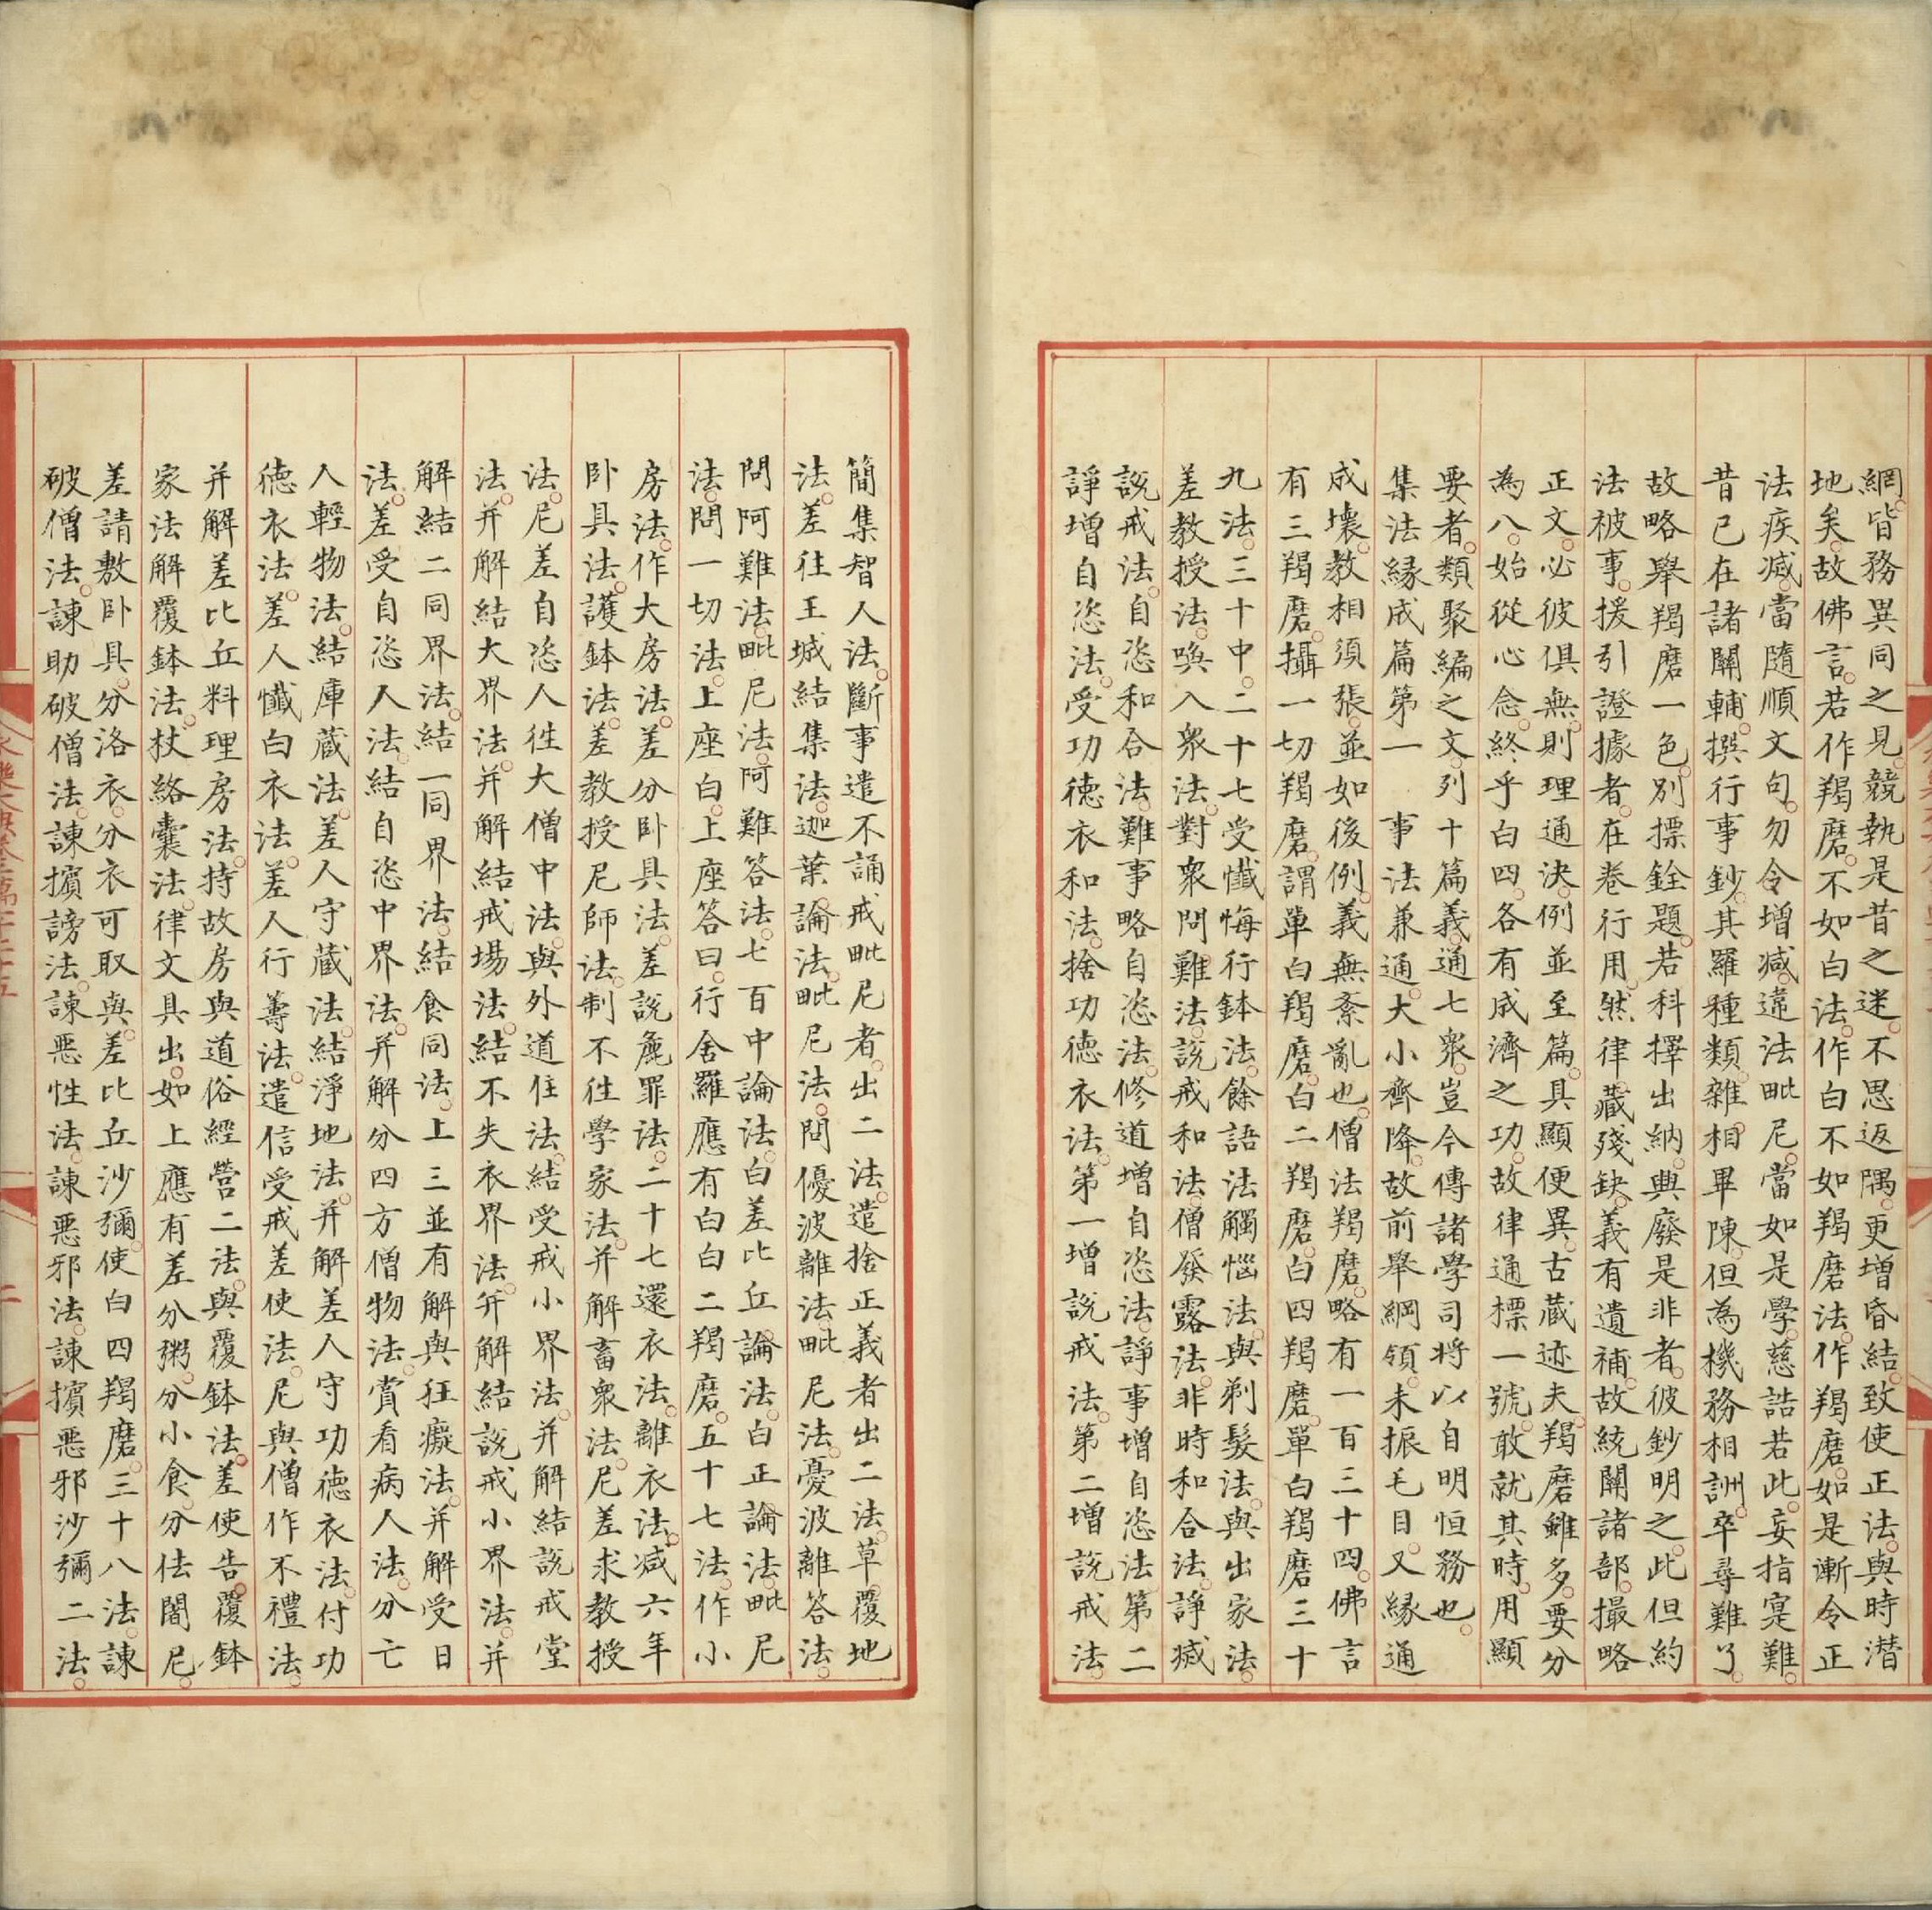 網。皆務異同之見。競執是昔之迷。不思返隅。更增昏結。致使正法。與時潛
地矣。故佛言。若作羯磨。不如白法。作白不如羯磨法。作羯磨。如是漸令正
法疾滅。當隨順文句。勿令增减。違法毗尼。當如是學。慈誥若此。妄指寔難。
昔已在諸關輔。撰行事鈔。其羅種類。雜相畢陳。但為機務相詶。卒尋難了。
故略舉羯磨一色。別摽銓題。若科擇出納。興廢是非者。彼鈔明之。此但約
法被事。援引證據者。在卷行用。然律藏殘缺。義有遺補。故統關諸部。撮略
正文。必彼俱無。則理通決。例並至篇。具顯便異。古藏迹夫羯磨雖多。要分
為八。始從心念。終乎白四。各有成濟之功。故律通標一號。敢就其時。用顯
要者。類聚編之文。列十篇義。通七衆。豈今傳諸學司將以自明恒務也。
集法緣成篇第一　事法兼通。大小齊降。故前舉綱領。未振毛目。又緣通
成壞。教相須張。並如後例。義無紊亂也。僧法羯磨。略有一百三十四。佛言
有三羯磨。攝一切羯磨。謂單白羯磨。白二羯磨。白四羯磨。單白羯磨三十
九法。三十中。二十七受懺悔行鉢法。餘語法觸惱法。與剃髮法。與出家法。
差教授法。喚入衆法。對衆問難法。說戒和法僧發露法。非時和合法。諍滅
說戒法。自恣和合法。難事略自恣法。修道增自恣法。諍事增自恣法第二
諍增自恣法。受功德衣和法。捨功德衣法。第一增說戒法。第二增說戒法。
簡集智人法。斷事遣不誦戒毗尼者。出二法。遣捨正義者出二法。草覆地
法。差往王城結集法。迦葉論法。毗尼法。問優波離法。毗尼法。憂波離答法。
問阿難法。毗尼法。阿難答法。七百中論法。白差比丘論法。白正論法。毗尼
法。問一切法。上座白。上座答曰。行舍羅應有白白二羯磨。五十七法。作小
房法。作大房法。差分卧具法。差說麁罪法。二十七還衣法。離衣法。减六年
卧具法。護鉢法。差教授尼師法。制不往學家法。并解畜衆法。尼差求教授
法。尼差自恣人徃大僧中法。與外道住法。結受戒小界法。并解結說戒堂
法。并解結大界法。并解結戒場法。結不失衣界法。并解結說戒小界法。并
解結二同界法。結一同界法。結食同法。上三並有解與狂癡法。并解受日
法。差受自恣人法。結自恣中界法。并解分四方僧物法。賞看病人法。分亡
人輕物法。結庫藏法。差人守藏法。結淨地法。并解差人守功德衣法。付功
德衣法。差人懺白衣法。差人行籌法。遣信受戒差使法。尼與僧作不禮法。
并解差比丘料理房法。持故房與道俗經營二法。與覆鉢法。差使告覆鉢
家法解覆鉢法。杖絡囊法。律文具出。如上應有差分粥。分小食。分佉闍尼。
差請敷卧具。分浴衣。分衣可取與。差比丘沙彌。使白四羯磨。三十八法。諫
破僧法。諫助破僧法。諫擯謗法。諫惡性法。諫惡邪法。諫擯惡邪沙彌二法。